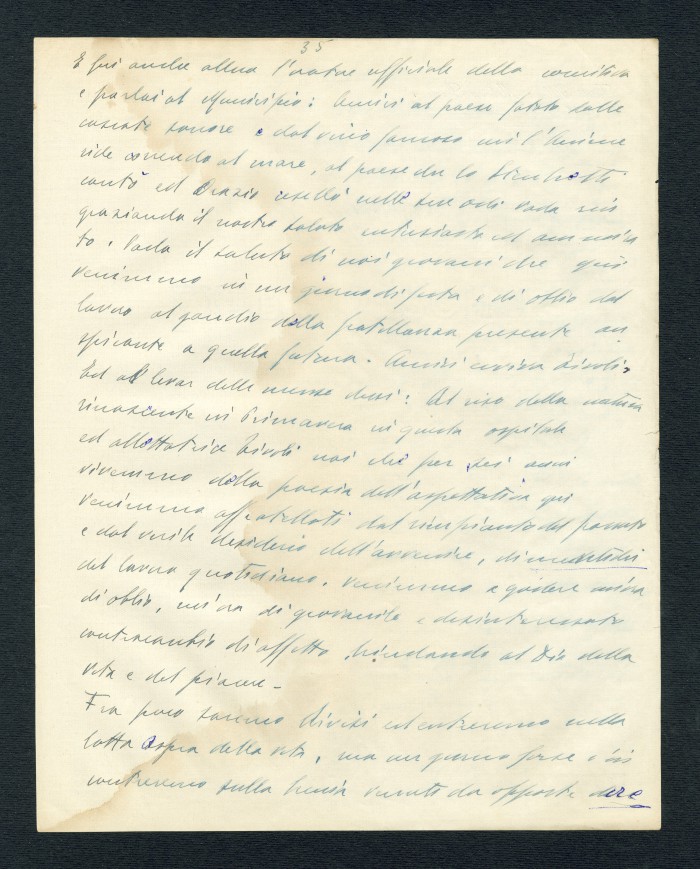 35
E fui anche allora l'oratore ufficiale della comitiva
e parlai al Municipio: Amici al paese fatato dalle
cascate sonore e dal vino famoso ove l'Aniene
ride correndo al mare, al paese che la
cantò ed Orazio cesellò nelle sue odi vada rin
graziando il nostro saluto entusiasta ed ammira
to. Vada il saluto di noi giovani che qui
venimmo in un giorno di festa e di oblio dal
lavoro al gaudio della fratellanza presente au
spicante a quella futura. Amici evviva Tivoli.
Ed al levar delle mense dissi: Al riso della natura
rinascente in Primavera in questa ospitale
ed allettatrice Tivoli noi che per sei anni
vivemmo della poesia dell'aspettativa qui
venimmo affratellati dal rimpianto del passato
e dal virile desiderio dell'avvenire,
del lavoro quotidiano. Venimmo a godere un'ora
di oblio, un'ora di giovanile e disinteressato
contraccambio di affetto, brindando al Dio della
vita e del piacere -
Fra poco saremo divisi ed entreremo nella
lotta aspra della vita, ma un giorno forse c'in
contreremo sulla venuti da opposte